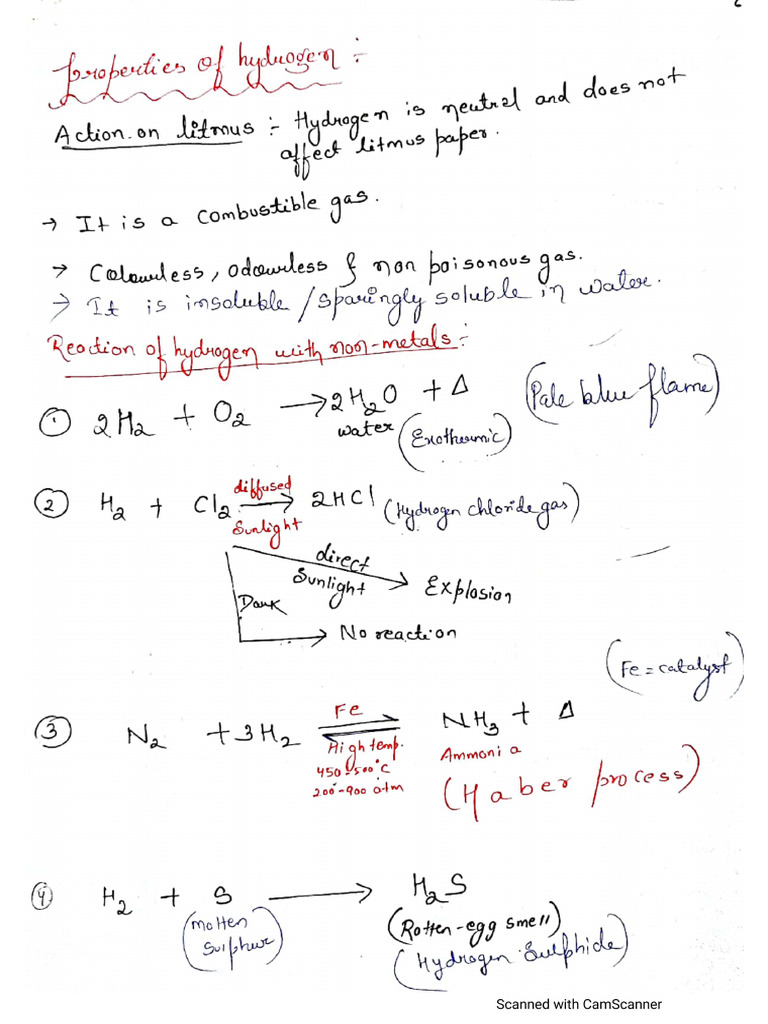 Properties of hydrogen :-
Action on litmus :- Hydrogen is neutral and does not
affect litmus paper.
→ It is a combustible gas.
→ Colourless, odourless & non poisonous gas.
→ It is insoluble / sparingly soluble in water.
Reaction of hydrogen with non-metals :-
① 2H₂ + O₂ → 2H₂O + Δ (Pale blue flame)
water (Exothermic)
② H₂ + Cl₂ diffused → Sunlight 2HCl (Hydrogen chloride gas)
direct Sunlight → Explosion
Dark → No reaction
(Fe = catalyst)
③ N₂ + 3H₂ Fe ⇌ NH₃ + Δ
High temp. Ammonia
450-500°C
200-900 atm (Haber process)
④ H₂ + S → H₂S
(Molten (Rotten-egg smell)
Sulphur) (Hydrogen Sulphide)
Scanned with CamScanner